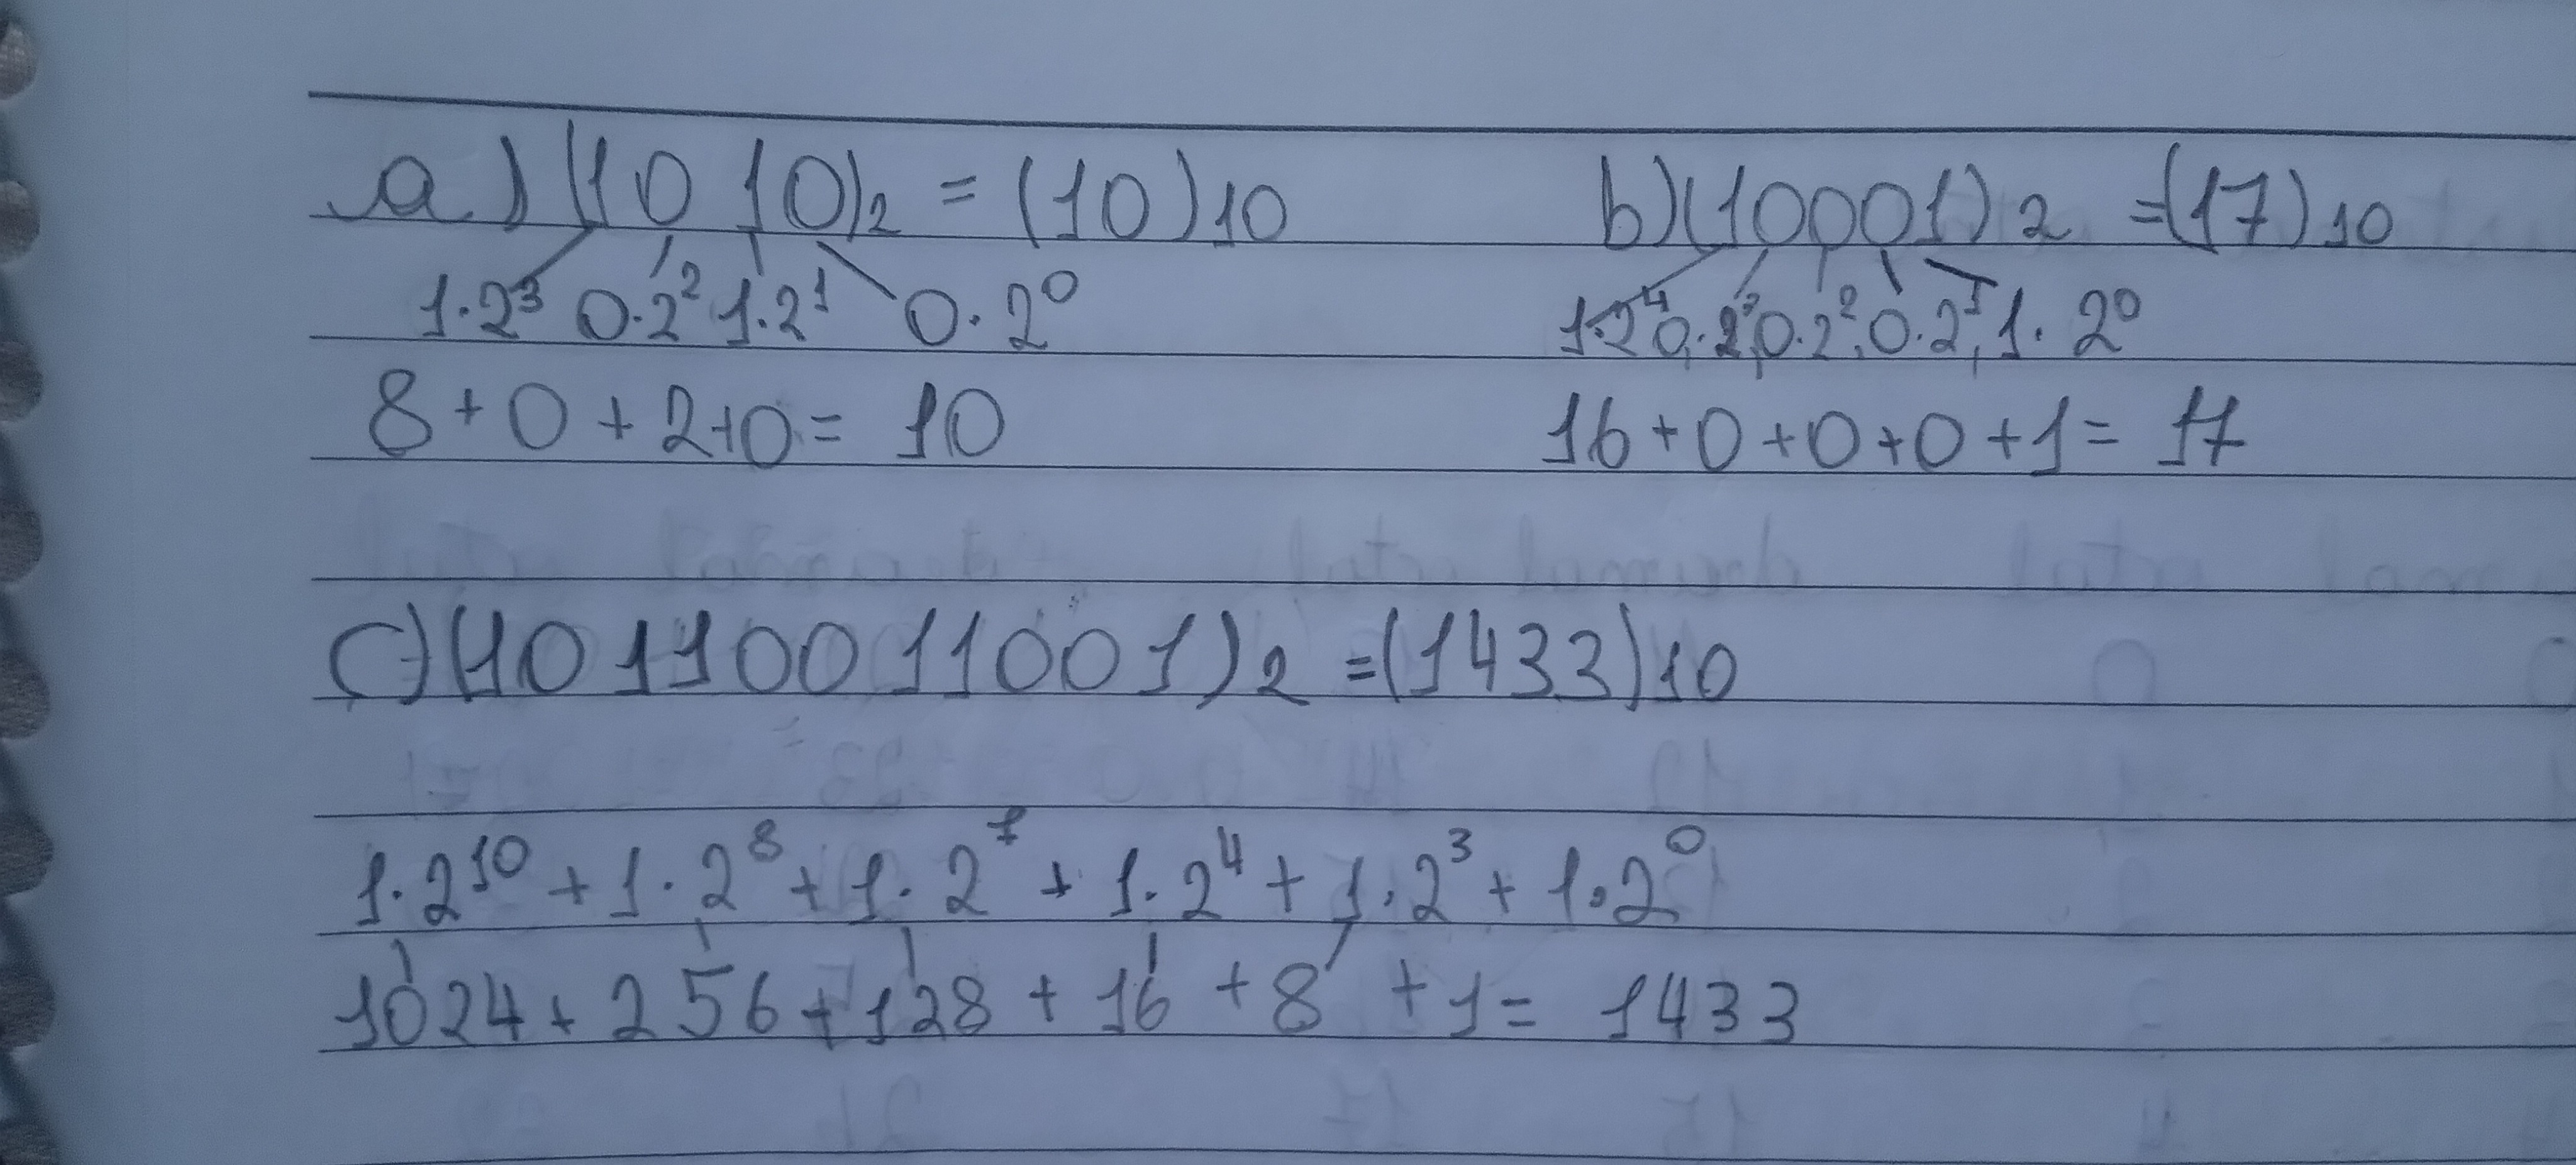 a) (1010)₂ = (10)10
1·2³ 0·2² 1·2¹ 0·2⁰
8+0+2+0= 10
b) (10001)2 =(17)10
1·2⁴ 0·2³, 0·2², 0·2¹, 1·2⁰
16+0+0+0+1= 17
c) (10110011001)2 =(1433)10
1·2¹⁰ + 1·2⁸ + 1·2⁷ + 1·2⁴ + 1·2³ + 1·2⁰
1024+256+128+16+8+1= 1433